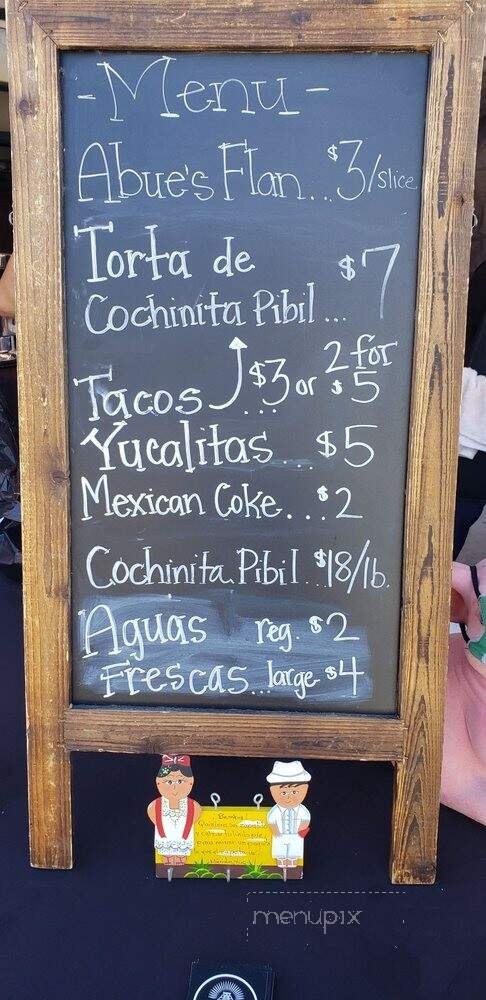 - Menu -
Abue's Flan... $3/slice
Torta de
Cochinita Pibil... $7
Tacos ... $3 or 2 for $5
Yucalitas ... $5
Mexican Coke... $2
Cochinita Pibil.. $18/lb.
Aguas reg. $2
Frescas... large $4
menupix